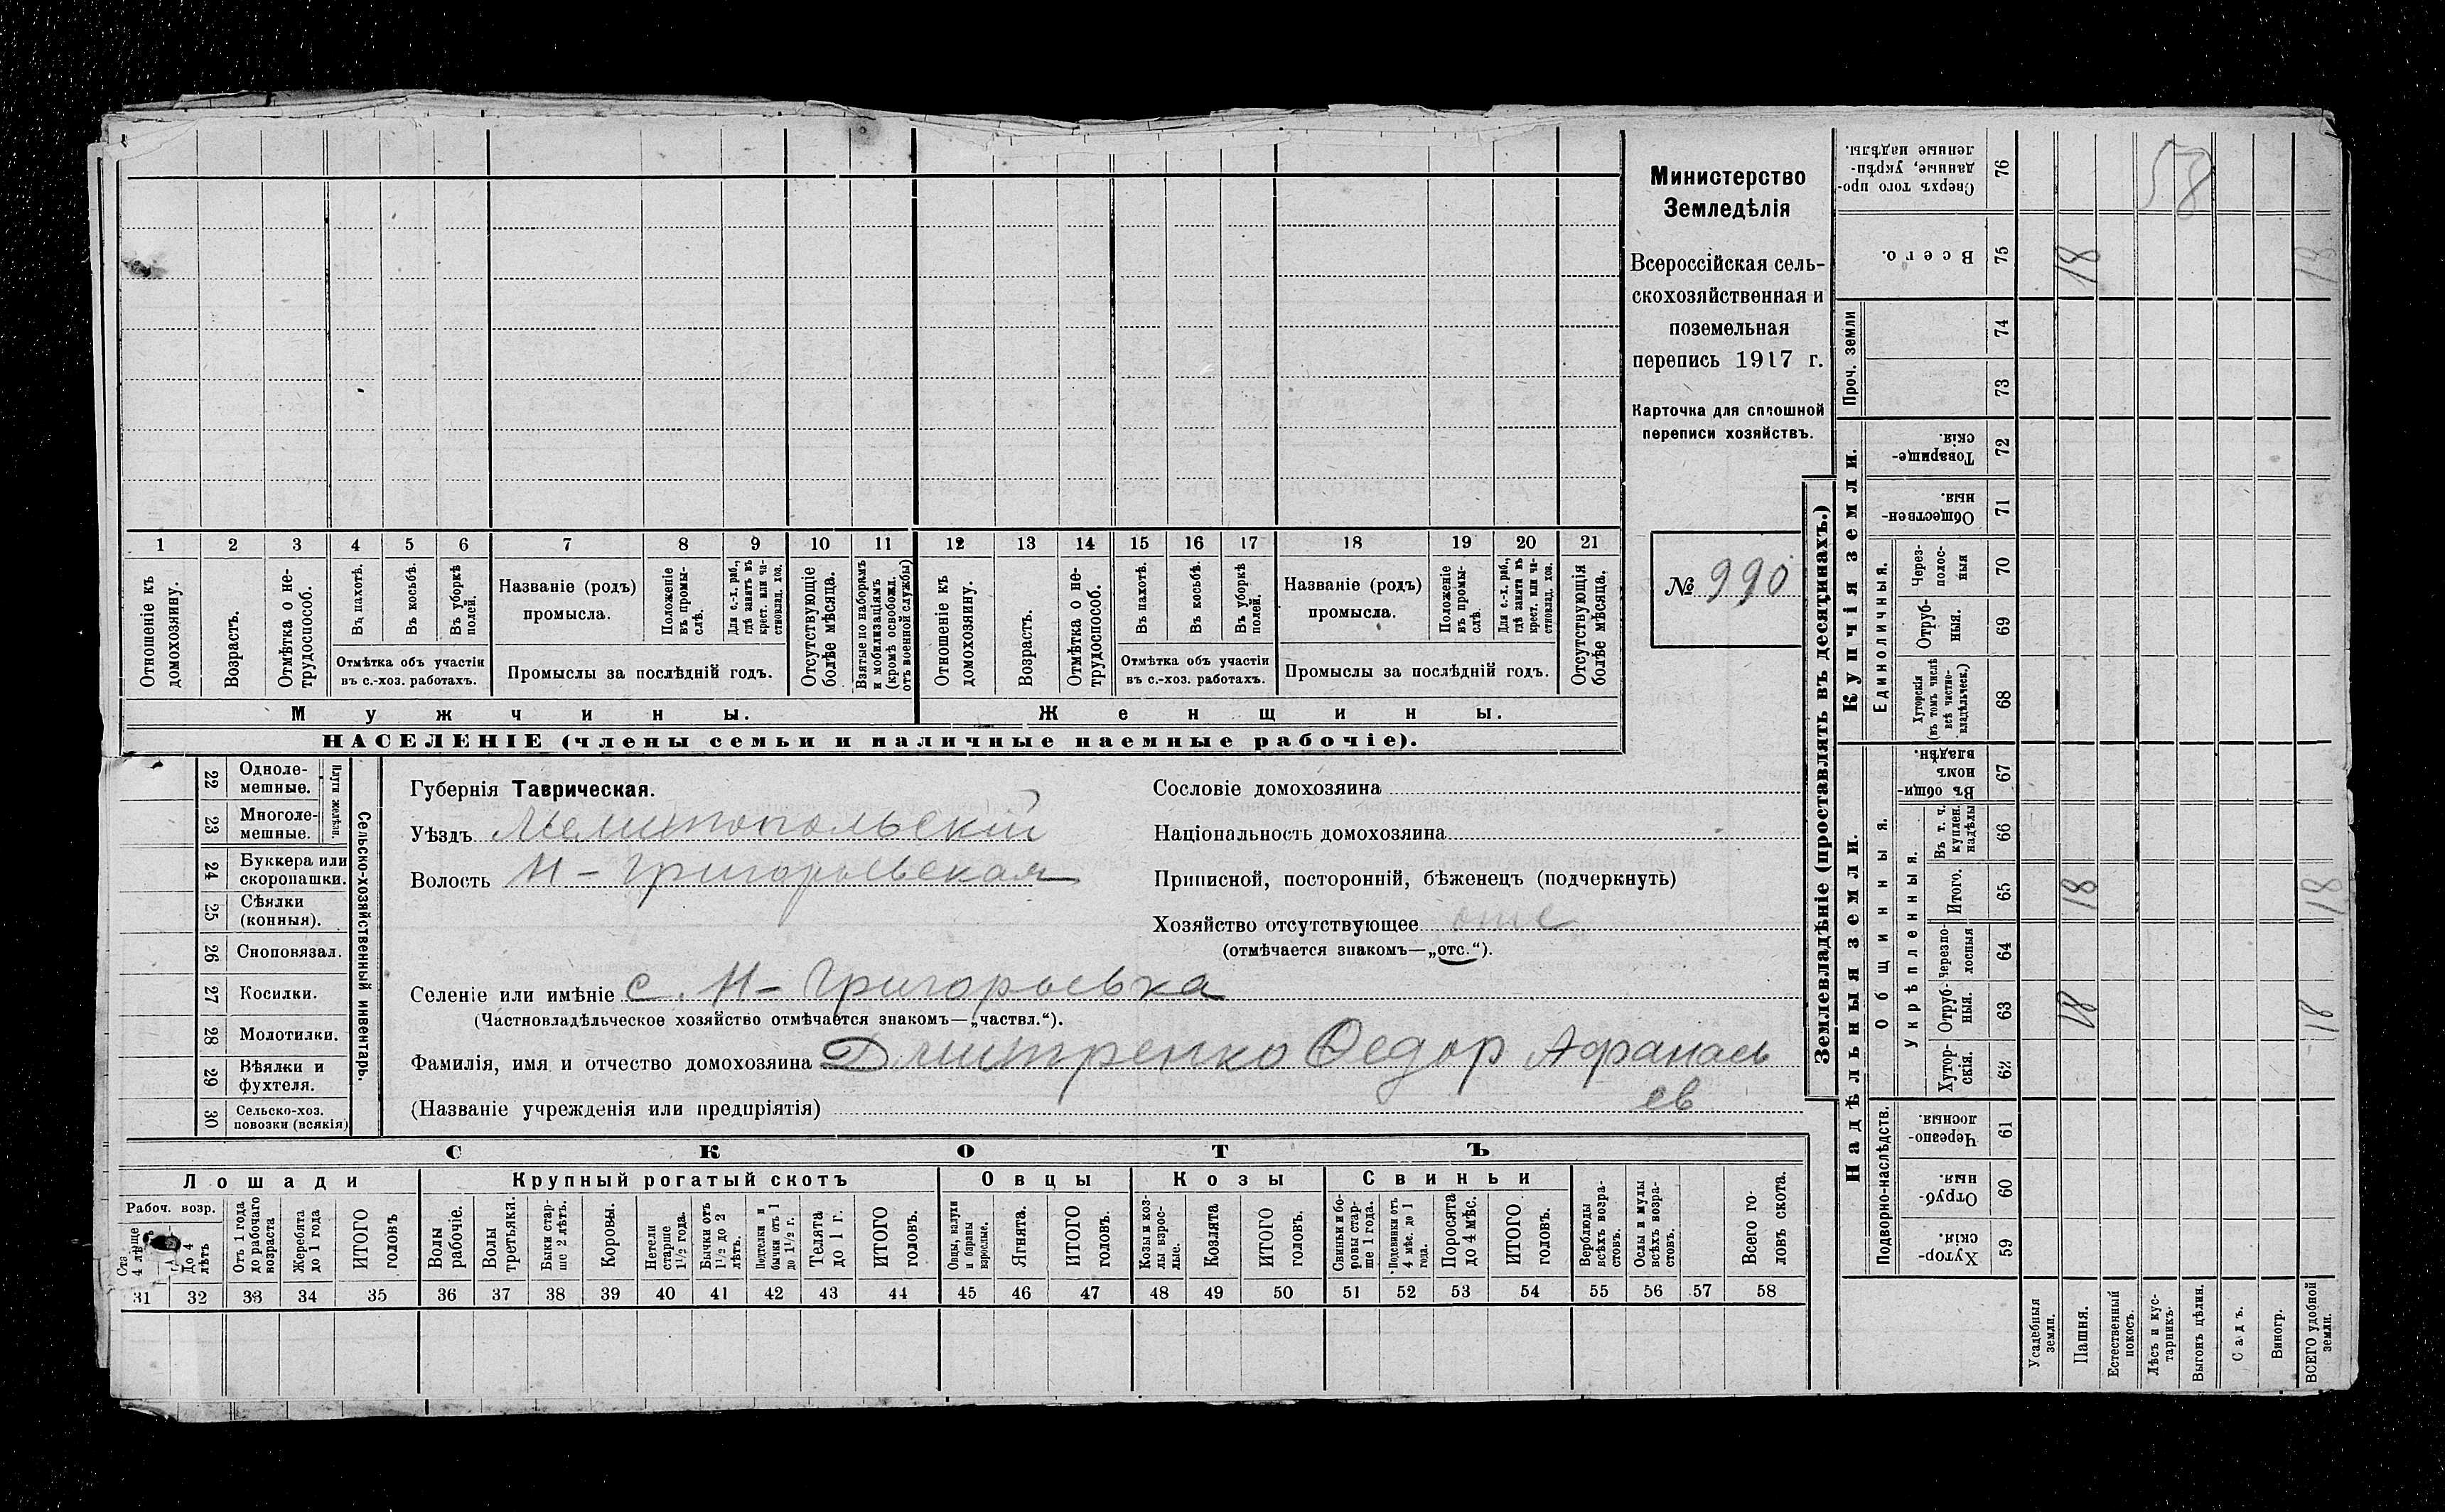 Министерство
Земледѣлія
Всероссійская сель-
скохозяйственная и
поземельная
перепись 1917 г.
Карточка для сплошной
переписи хозяйствъ.
№ 990
1 2 3 4 5 6 7 8 9 10 11 12 13 14 15 16 17 18 19 20 21
Отношеніе къ домохозяину.
Возрастъ.
Отмѣтка о не-трудоспособ.
Въ пахотѣ.
Въ косьбѣ.
Въ уборкѣ полей.
Отмѣтка объ участіи
въ с.-хоз. работахъ.
Названіе (родъ)
промысла.
Положеніе въ промы-слѣ.
Для с.-х. раб., гдѣ занятъ въ крест. или ча-стновлад. хоз.
Промыслы за послѣдній годъ.
Отсутствующіе болѣе мѣсяца.
Взятые по наборамъ и мобилизаціямъ (кромѣ освобожд. отъ военной службы)
Отношеніе къ домохозяину.
Возрастъ.
Отмѣтка о не-трудоспособ.
Въ пахотѣ.
Въ косьбѣ.
Въ уборкѣ полей.
Отмѣтка объ участіи
въ с.-хоз. работахъ.
Названіе (родъ)
промысла.
Положеніе въ промы-слѣ.
Для с.-х. раб., гдѣ занята въ крест. или ча-стновлад. хоз.
Промыслы за послѣдній годъ.
Отсутствующія болѣе мѣсяца.
Мужчины.
Женщины.
НАСЕЛЕНІЕ (члены семьи и наличные наемные рабочіе).
22 Одноле-мешные.
23 Многоле-мешные.
Плуги желѣзн.
24 Буккера или скоропашки.
25 Сѣялки (конныя).
26 Сноповязал.
27 Косилки.
28 Молотилки.
29 Вѣялки и фухтеля.
30 Сельско-хоз. повозки (всякія)
Сельско-хозяйственный инвентарь.
Губернія Таврическая.
Уѣздъ Мелитопольскій
Волость Н-Григорьевская
Сословіе домохозяина
Національность домохозяина
Приписной, посторонній, бѣженецъ (подчеркнуть)
Хозяйство отсутствующее отс
(отмѣчается знакомъ—„отс.“).
Селеніе или имѣніе с. Н-Григорьевка
(Частновладѣльческое хозяйство отмѣчается знакомъ—„частвл.“).
Фамилія, имя и отчество домохозяина Дмитренко Ѳедор Афанась
ев
(Названіе учрежденія или предпріятія)
СКОТЪ
Лошади
Крупный рогатый скотъ
Овцы
Козы
Свиньи
Рабоч. возр.
До 4 лѣтъ
Отъ 1 года до рабочаго возраста
Жеребята до 1 года
ИТОГО головъ
Волы рабочіе.
Волы третьяки.
Быки стар-ше 2 лѣтъ.
Коровы.
Нетели старше 1½ года.
Бычки отъ 1½ до 2 лѣтъ.
Подтелки и бычки отъ 1 до 1½ г.
Телята до 1 г.
ИТОГО головъ.
Овцы, валухи и бараны взрослые.
Ягнята.
ИТОГО головъ.
Козы и коз-лы взрос-лые.
Козлята
ИТОГО головъ.
Свиньи и бо-ровы стар-ше 1 года.
Подсвинки отъ 4 мѣс. до 1 года.
Поросята до 4 мѣс.
ИТОГО головъ.
Верблюды всѣхъ возра-стовъ.
Ослы и мулы всѣхъ возра-стовъ.
Всего го-ловъ скота.
31 32 33 34 35 36 37 38 39 40 41 42 43 44 45 46 47 48 49 50 51 52 53 54 55 56 57 58
Землевладѣніе (проставлять въ десятинахъ.)
Купчія земли.
Надѣльныя земли.
Проч. земли
Единоличныя.
Общинныя.
Укрѣпленныя.
Подворно-наслѣдств.
76 Сверхъ того про-данные, укрѣп-ленные надѣлы.
58
75 Всего. 18 18
74
73
72 Товарище-скія.
71 Обществен-ныя.
70 Через-полос-ныя
69 Отруб-ныя.
68 Хуторскія (въ томъ числѣ всѣ частно-владѣльческ.)
67 Въ общи-номъ владѣн.
66 Въ т. ч. куплен. надѣлы
65 Итого. 18 18
64 Черезпо-лосныя
63 Отруб-ныя. 18 18
62 Хутор-скія.
61 Черезпо-лосныя
60 Отруб-ныя.
59 Хутор-скія.
Усадебныя земли.
Пашня.
Естественный покосъ.
Лѣсъ и кус-тарникъ.
Выгонъ цѣлин.
Садъ.
Виногр.
ВСЕГО удобной земли.